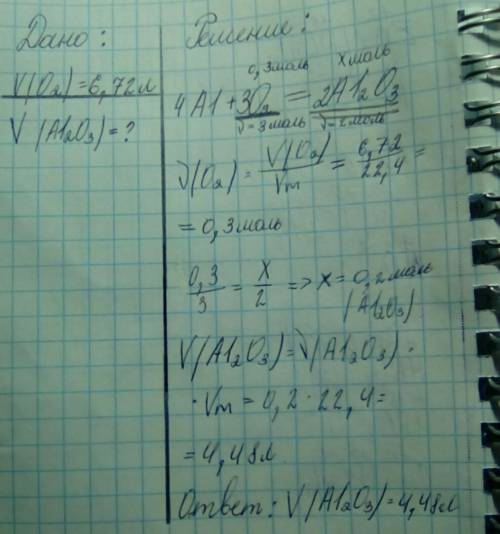 Дано:
V(O₂)=6,72л
V (Al₂O₃)=?
Решение:
0,3моль xмоль
4Al+3O₂=2Al₂O₃
ν=3моль ν=2моль
ν(O₂)=V(O₂)/Vm=6,72/22,4=
=0,3моль
0,3/3=x/2 => x=0,2моль
(Al₂O₃)
V(Al₂O₃)=ν(Al₂O₃)·
·Vm=0,2·22,4=
=4,48л
Ответ: V(Al₂O₃)=4,48л